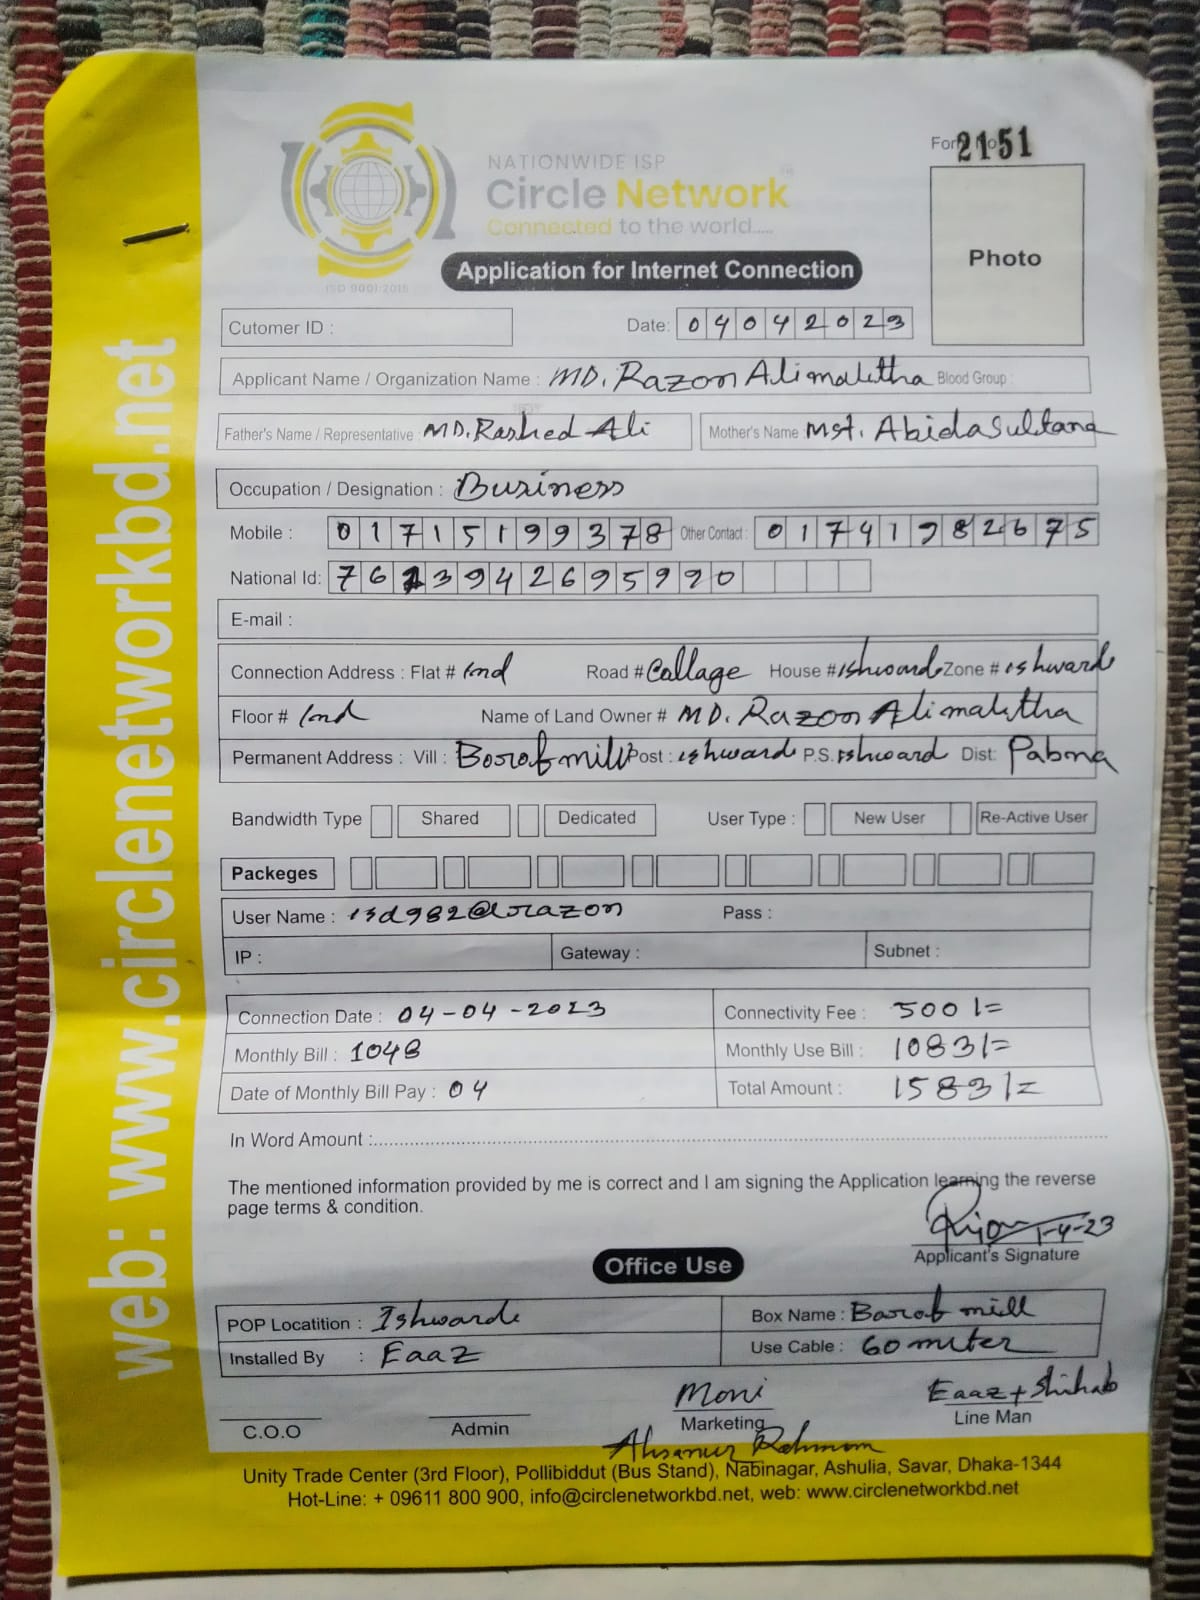 web: www.circlenetworkbd.net
NATIONWIDE ISP
Circle Network
Connected to the world.....
ISO 9001:2015
2151
Photo
Application for Internet Connection
Cutomer ID :
Date: 04042023
Applicant Name / Organization Name : MD. Razon Alimalitha Blood Group :
Father's Name / Representative : MD. Rashed Ali Mother's Name : Mst. Abida Sultana
Occupation / Designation : Business
Mobile : 01715199378 Other Contact : 01741982675
National Id: 7613942695990
E-mail :
Connection Address : Flat # Road # Collage House # ishwardi Zone # ishwardi
Floor # Name of Land Owner # MD. Razon Alimalitha
Permanent Address : Vill : Borofmill Post : ishwardi P.S. ishwardi Dist: Pabna
Bandwidth Type Shared Dedicated User Type : New User Re-Active User
Packeges
User Name : isd982@razon Pass :
IP : Gateway : Subnet :
Connection Date : 04-04-2023 Connectivity Fee : 500/=
Monthly Bill : 1048 Monthly Use Bill : 1083/=
Date of Monthly Bill Pay : 04 Total Amount : 1583/=
In Word Amount :
The mentioned information provided by me is correct and I am signing the Application learning the reverse
page terms & condition.
1-4-23
Applicant's Signature
Office Use
POP Locatition : Ishwardi Box Name : Barof mill
Installed By : Eaaz Use Cable : 60 miter
Moni Eaaz + Shihab
C.O.O Admin Marketing Line Man
Ahsanur Rahman
Unity Trade Center (3rd Floor), Pollibiddut (Bus Stand), Nabinagar, Ashulia, Savar, Dhaka-1344
Hot-Line: + 09611 800 900, info@circlenetworkbd.net, web: www.circlenetworkbd.net